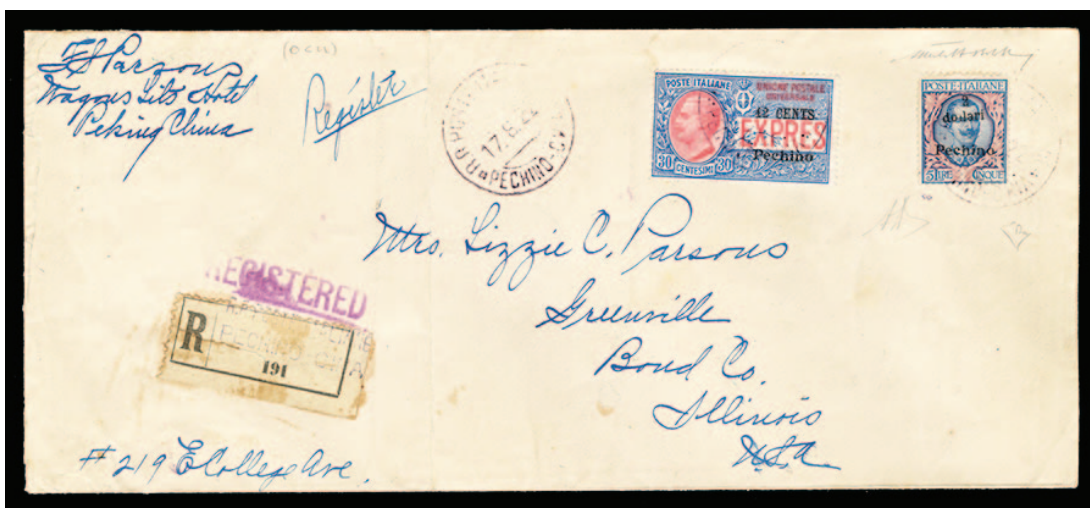 (OCN)
F S Parsons
Waggus Lits Hotel
Peking China
Register
17.6.22
PECHINO-C
POSTE ITALIANE
UNIONE POSTALE
UNIVERSALE
12 CENTS
EXPRES
Pechino
30 CENTESIMI 30
POSTE-ITALIANE
2
dollari
Pechino
5 LIRE CINQUE
Mrs. Lizzie C. Parsons
Greenville
Bond Co.
Illinois
U.S.A
REGISTERED
R
PECHINO
191
# 219 E College Ave.